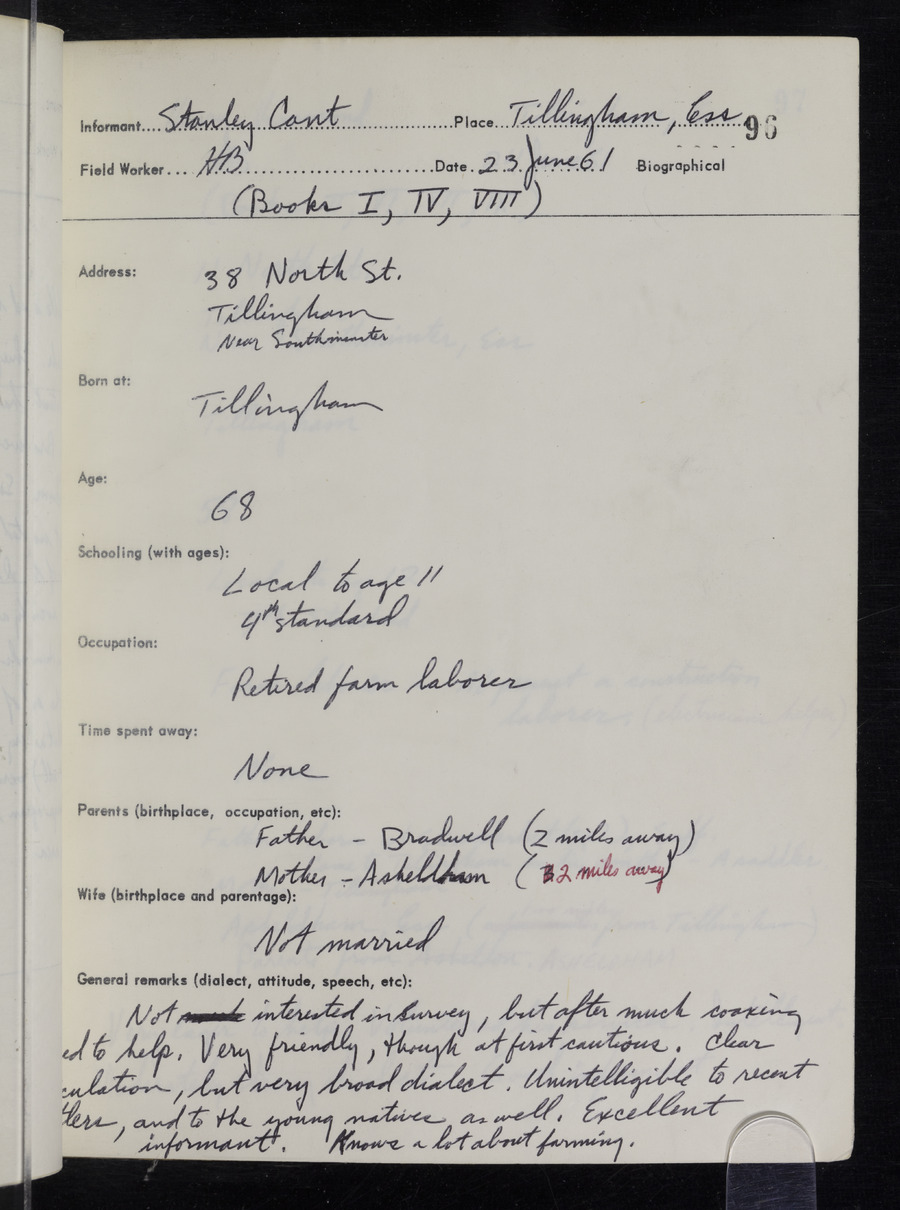 Informant....Stanley Cant Place Tillingham, Ess 96
Field Worker... HB Date. 23 June 61 Biographical
(Books I, IV, VIII)
Address: 38 North St.
Tillingham
Near Southminster
Born at:
Tillingham
Age:
68
Schooling (with ages):
Local to age 11
4th standard
Occupation:
Retired farm laborer
Time spent away:
None
Parents (birthplace, occupation, etc):
Father - Bradwell (2 miles away)
Mother - Asheldham (2 miles away)
Wife (birthplace and parentage):
Not married
General remarks (dialect, attitude, speech, etc):
Not interested in survey, but after much coaxing
ed to help. Very friendly, though at first cautious. Clear
culation, but very broad dialect. Unintelligible to recent
tlers, and to the young natives as well. Excellent
informant. Knows a lot about farming.